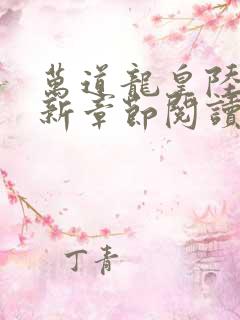 萬道龍皇陸
新章節閱讀
丁青